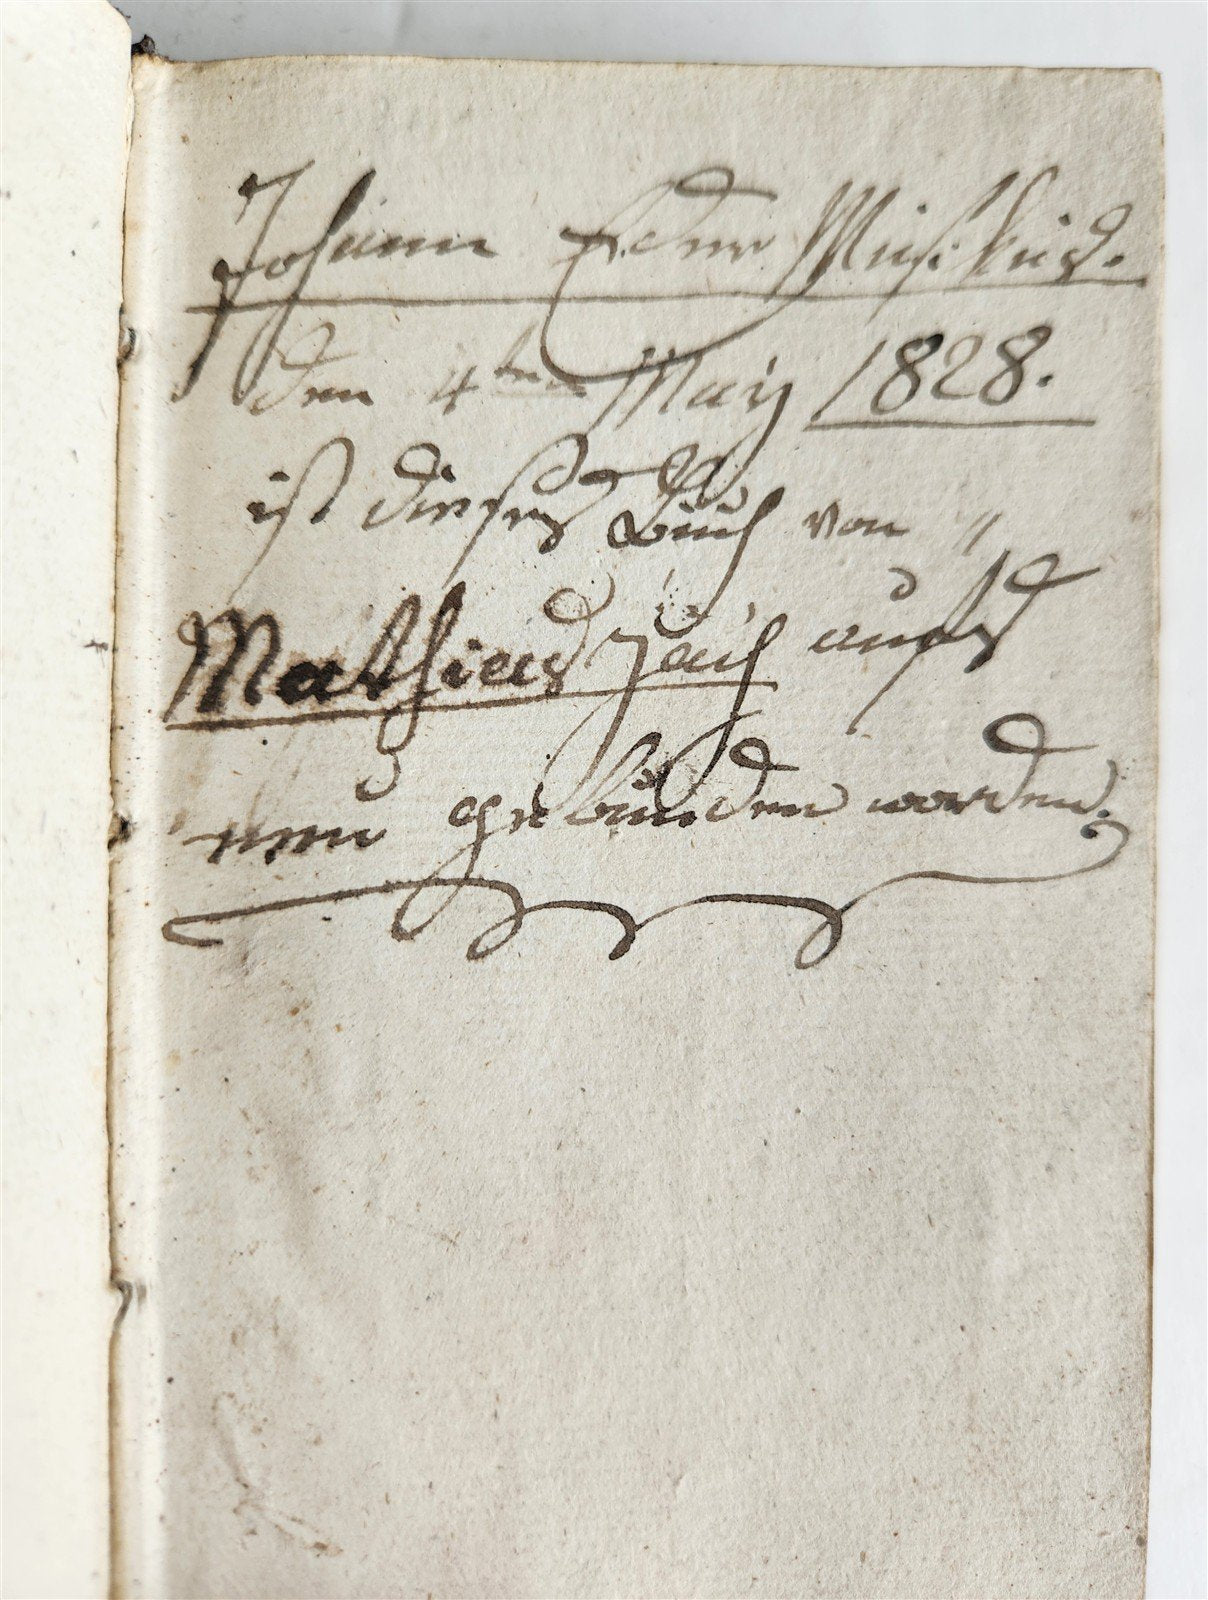 Johann Eder Musikus.
den 4ten May 1828.
ist dieses Buch von "
Mathias Zäch aufs
neu gebunden worden.